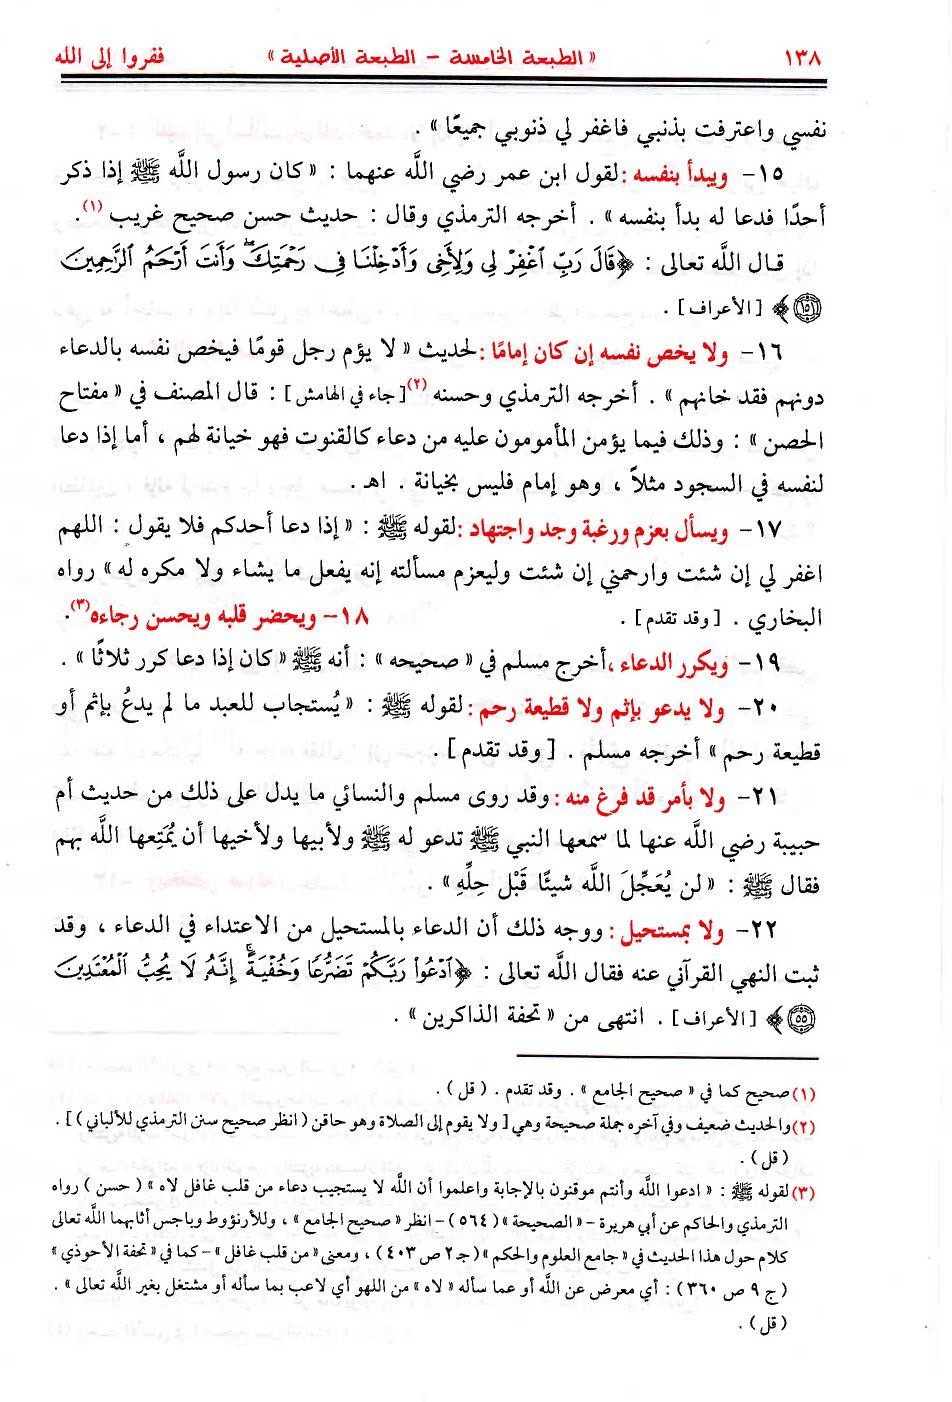 ١٣٨ « الطبعة الخامسة – الطبعة الأصلية » ففروا إلى الله
نفسي واعترفت بذنبي فاغفر لي ذنوبي جميعًا » .
١٥- ويبدأ بنفسه : لقول ابن عمر رضي الله عنهما : « كان رسول الله ﷺ إذا ذكر
أحدًا فدعا له بدأ بنفسه » . أخرجه الترمذي وقال : حديث حسن صحيح غريب (١).
قال الله تعالى : ﴿قَالَ رَبِّ ٱغْفِرْ لِى وَلِأَخِى وَأَدْخِلْنَا فِى رَحْمَتِكَ ۖ وَأَنتَ أَرْحَمُ ٱلرَّٰحِمِينَ
١٥١﴾ [ الأعراف ] .
١٦- ولا يخص نفسه إن كان إمامًا : لحديث « لا يؤم رجل قومًا فيخص نفسه بالدعاء
دونهم فقد خانهم » . أخرجه الترمذي وحسنه (٢) [ جاء في الهامش ] : قال المصنف في « مفتاح
الحصن » : وذلك فيما يؤمن المأمومون عليه من دعاء كالقنوت فهو خيانة لهم ، أما إذا دعا
لنفسه في السجود مثلاً ، وهو إمام فليس بخيانة . اهـ .
١٧- ويسأل بعزم ورغبة وجد واجتهاد : لقوله ﷺ : « إذا دعا أحدكم فلا يقول : اللهم
اغفر لي إن شئت وارحمني إن شئت وليعزم مسألته إنه يفعل ما يشاء ولا مكره له » رواه
البخاري . [ وقد تقدم ] . ١٨- ويحضر قلبه ويحسن رجاءه (٣).
١٩- ويكرر الدعاء ، أخرج مسلم في « صحيحه » : أنه ﷺ « كان إذا دعا كرر ثلاثًا » .
٢٠- ولا يدعو بإثم ولا قطيعة رحم : لقوله ﷺ : « يُستجاب للعبد ما لم يدعُ بإثم أو
قطيعة رحم » أخرجه مسلم . [ وقد تقدم ] .
٢١- ولا بأمر قد فرغ منه : وقد روى مسلم والنسائي ما يدل على ذلك من حديث أم
حبيبة رضي الله عنها لما سمعها النبي ﷺ تدعو له ﷺ ولأبيها ولأخيها أن يُمَتِعها الله بهم
فقال ﷺ : « لن يُعَجِّلَ الله شيئًا قَبْل حِلِّهِ » .
٢٢- ولا بمستحيل : ووجه ذلك أن الدعاء بالمستحيل من الاعتداء في الدعاء ، وقد
ثبت النهي القرآني عنه فقال الله تعالى : ﴿ٱدْعُوا۟ رَبَّكُمْ تَضَرُّعًا وَخُفْيَةً ۚ إِنَّهُۥ لَا يُحِبُّ ٱلْمُعْتَدِينَ
٥٥﴾ [ الأعراف ] . انتهى من « تحفة الذاكرين » .
(١) صحيح كما في « صحيح الجامع » . وقد تقدم . ( قل ) .
(٢) والحديث ضعيف وفي آخره جملة صحيحة وهي [ ولا يقوم إلى الصلاة وهو حاقن ( انظر صحيح سنن الترمذي للألباني ) ] .
( قل ) .
(٣) لقوله ﷺ : « ادعوا الله وأنتم موقنون بالإجابة واعلموا أن الله لا يستجيب دعاء من قلب غافل لاه » ( حسن ) رواه
الترمذي والحاكم عن أبي هريرة – « الصحيحة » ( ٥٦٤ ) – انظر « صحيح الجامع » ، وللأرنؤوط وباجس أثابهما الله تعالى
كلام حول هذا الحديث في « جامع العلوم والحكم » ( جـ ٢ ص ٤٠٣ ) ، ومعنى « من قلب غافل » – كما في « تحفة الأحوذي »
( ج ٩ ص ٣٦٠ ) : أي معرض عن الله أو عما سأله « لاه » من اللهو أي لاعب بما سأله أو مشتغل بغير الله تعالى » .
( قل ) .